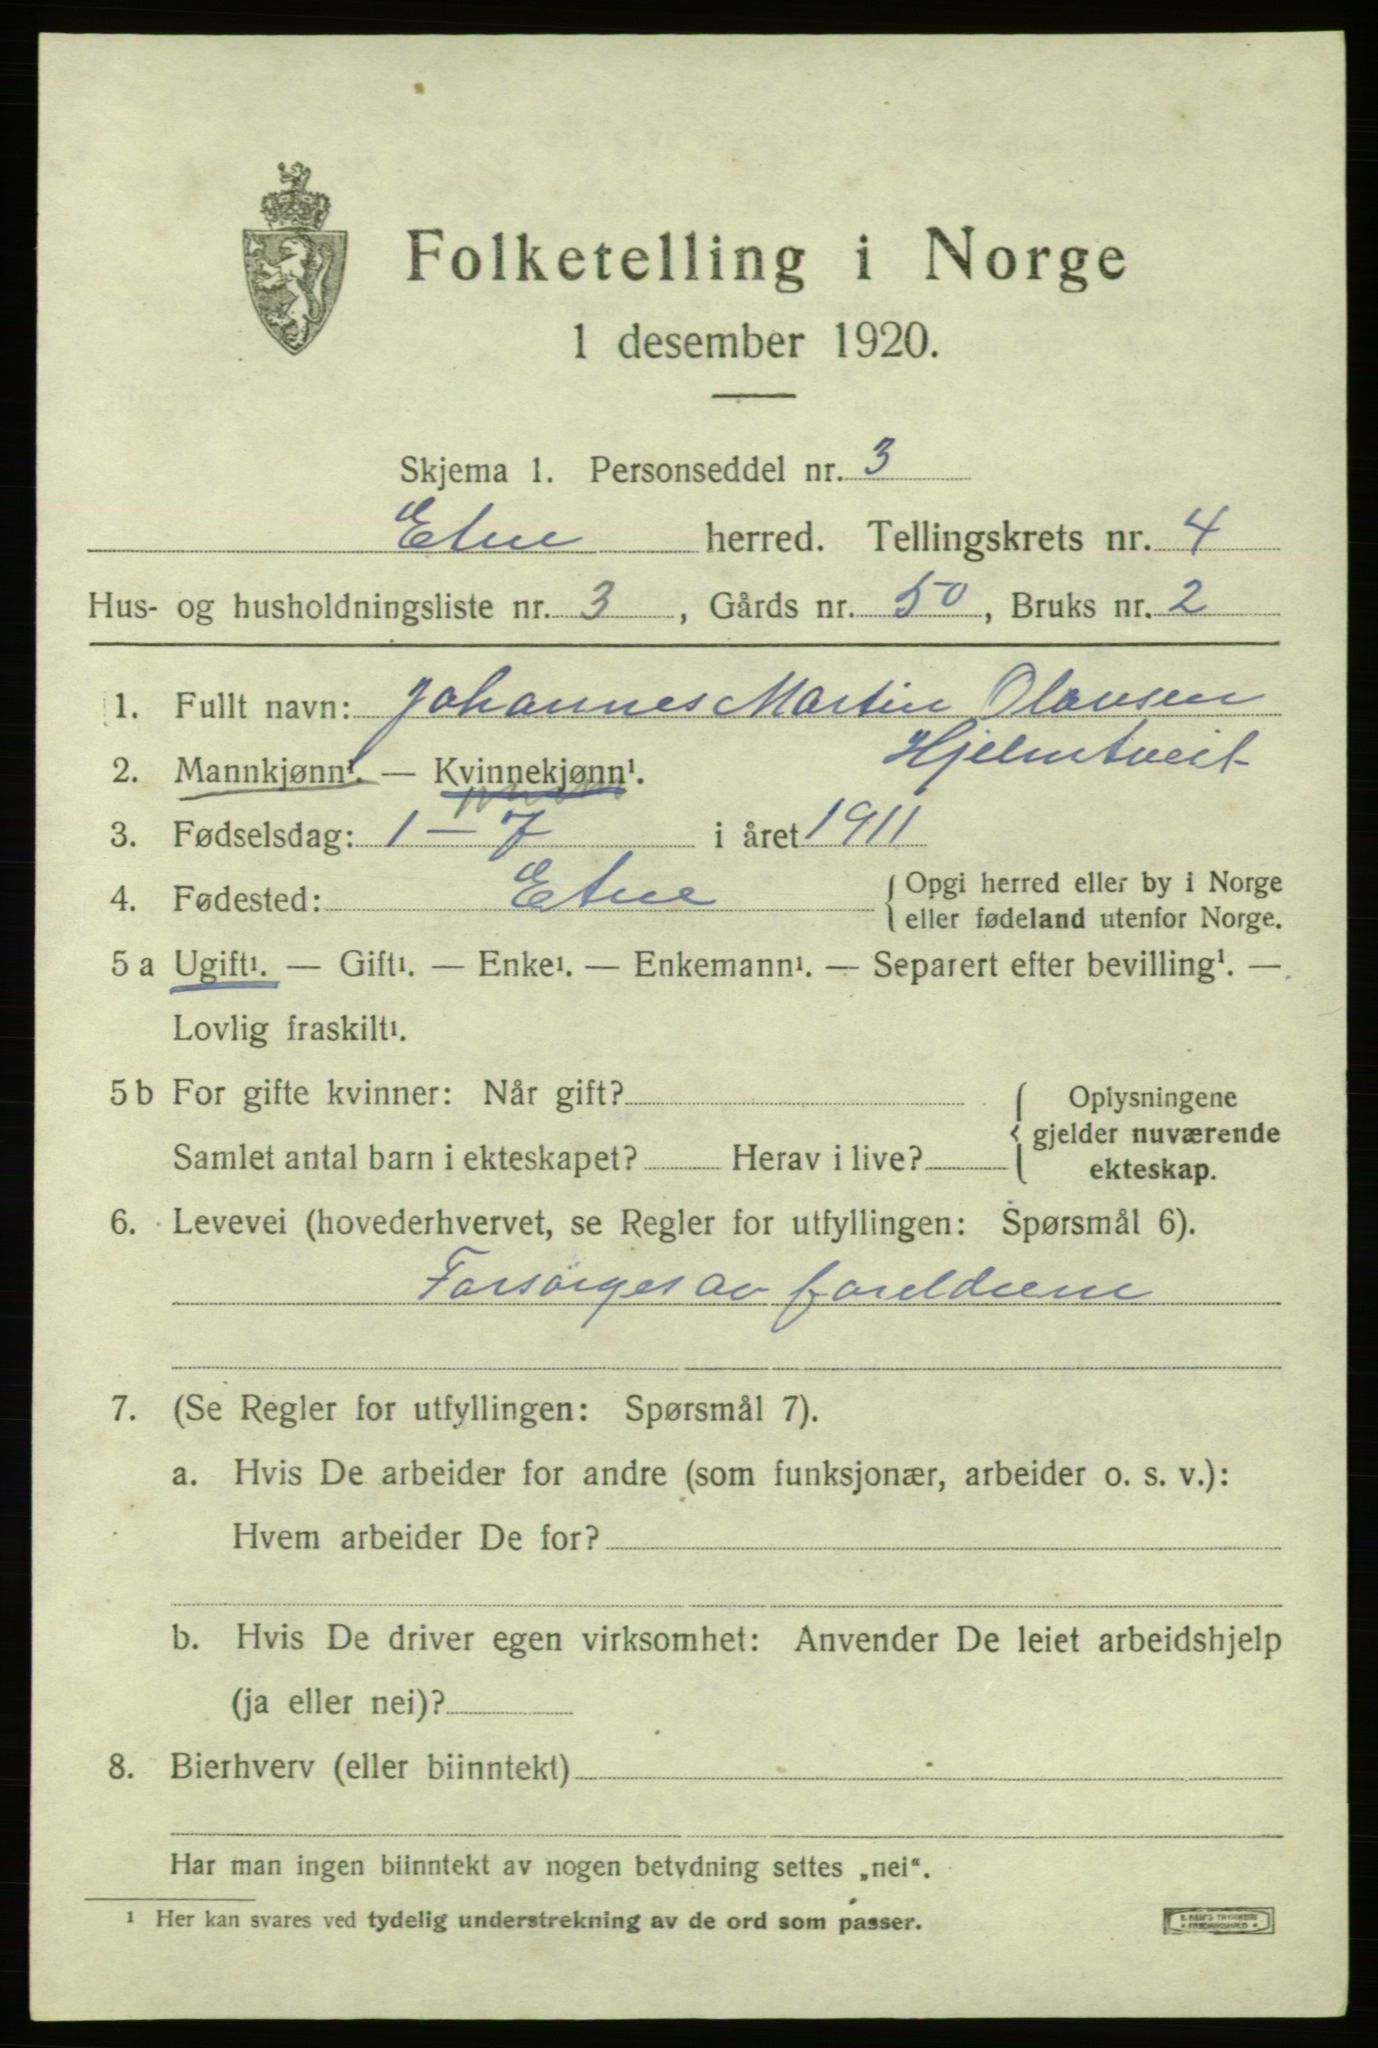 Folketelling i Norge
1 desember 1920.
Skjema 1. Personseddel nr. 3
Etne herred. Tellingskrets nr. 4
Hus- og husholdningsliste nr. 3, Gårds nr. 50, Bruks nr. 2
1. Fullt navn: Johannes Martin Olausen
Hjelmtveit
2. Mannkjønn¹. — Kvinnekjønn¹.
3. Fødselsdag: 1 – 7 i året 1911
4. Fødested: Etne {Opgi herred eller by i Norge
eller fødeland utenfor Norge.
5 a Ugift¹. — Gift¹. — Enke¹. — Enkemann¹. — Separert efter bevilling¹. —
Lovlig fraskilt¹.
5 b For gifte kvinner: Når gift? { Oplysningene
gjelder nuværende
Samlet antal barn i ekteskapet? Herav i live? ekteskap.
6. Levevei (hovederhvervet, se Regler for utfyllingen: Spørsmål 6).
Forsørges av foreldrene
7. (Se Regler for utfyllingen: Spørsmål 7).
a. Hvis De arbeider for andre (som funksjonær, arbeider o. s. v.):
Hvem arbeider De for?
b. Hvis De driver egen virksomhet: Anvender De leiet arbeidshjelp
(ja eller nei)?
8. Bierhverv (eller biinntekt)
Har man ingen biinntekt av nogen betydning settes „nei“.
¹ Her kan svares ved tydelig understrekning av de ord som passer.